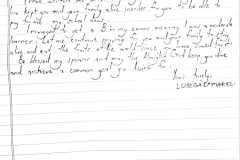 has kept you and your family alive inorder for you to be able to
my school fees.
I managed to get a B in my exams meaning I was a moderate
learner. Let me continue praying to you and your family to stay
alive and eat the fruits of the world since you have saved first.
Be blessed my sponsor and may the Almighty God keep you alive
and achieve a common goal you desire for.
Yours truely,
LUBEGA EMMANUEL